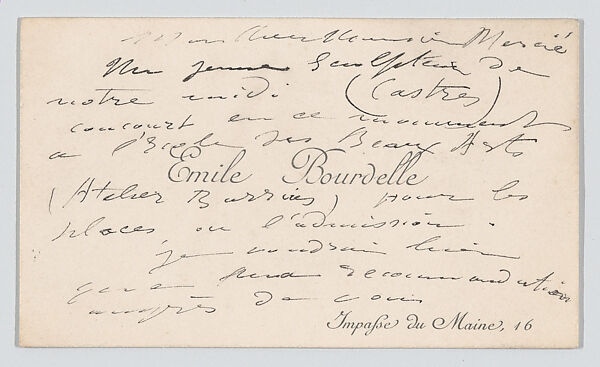 Mon cher Monsieur Mercié
Un jeune sculpteur de
notre midi (Castres)
concourt en ce moment
a l'Ecole des Beaux Arts
Emile Bourdelle
(Atelier Barrias) pour les
places ou l'admission.
je voudrais bien
que ma recommandation
auprès de vous
Impasse du Maine, 16